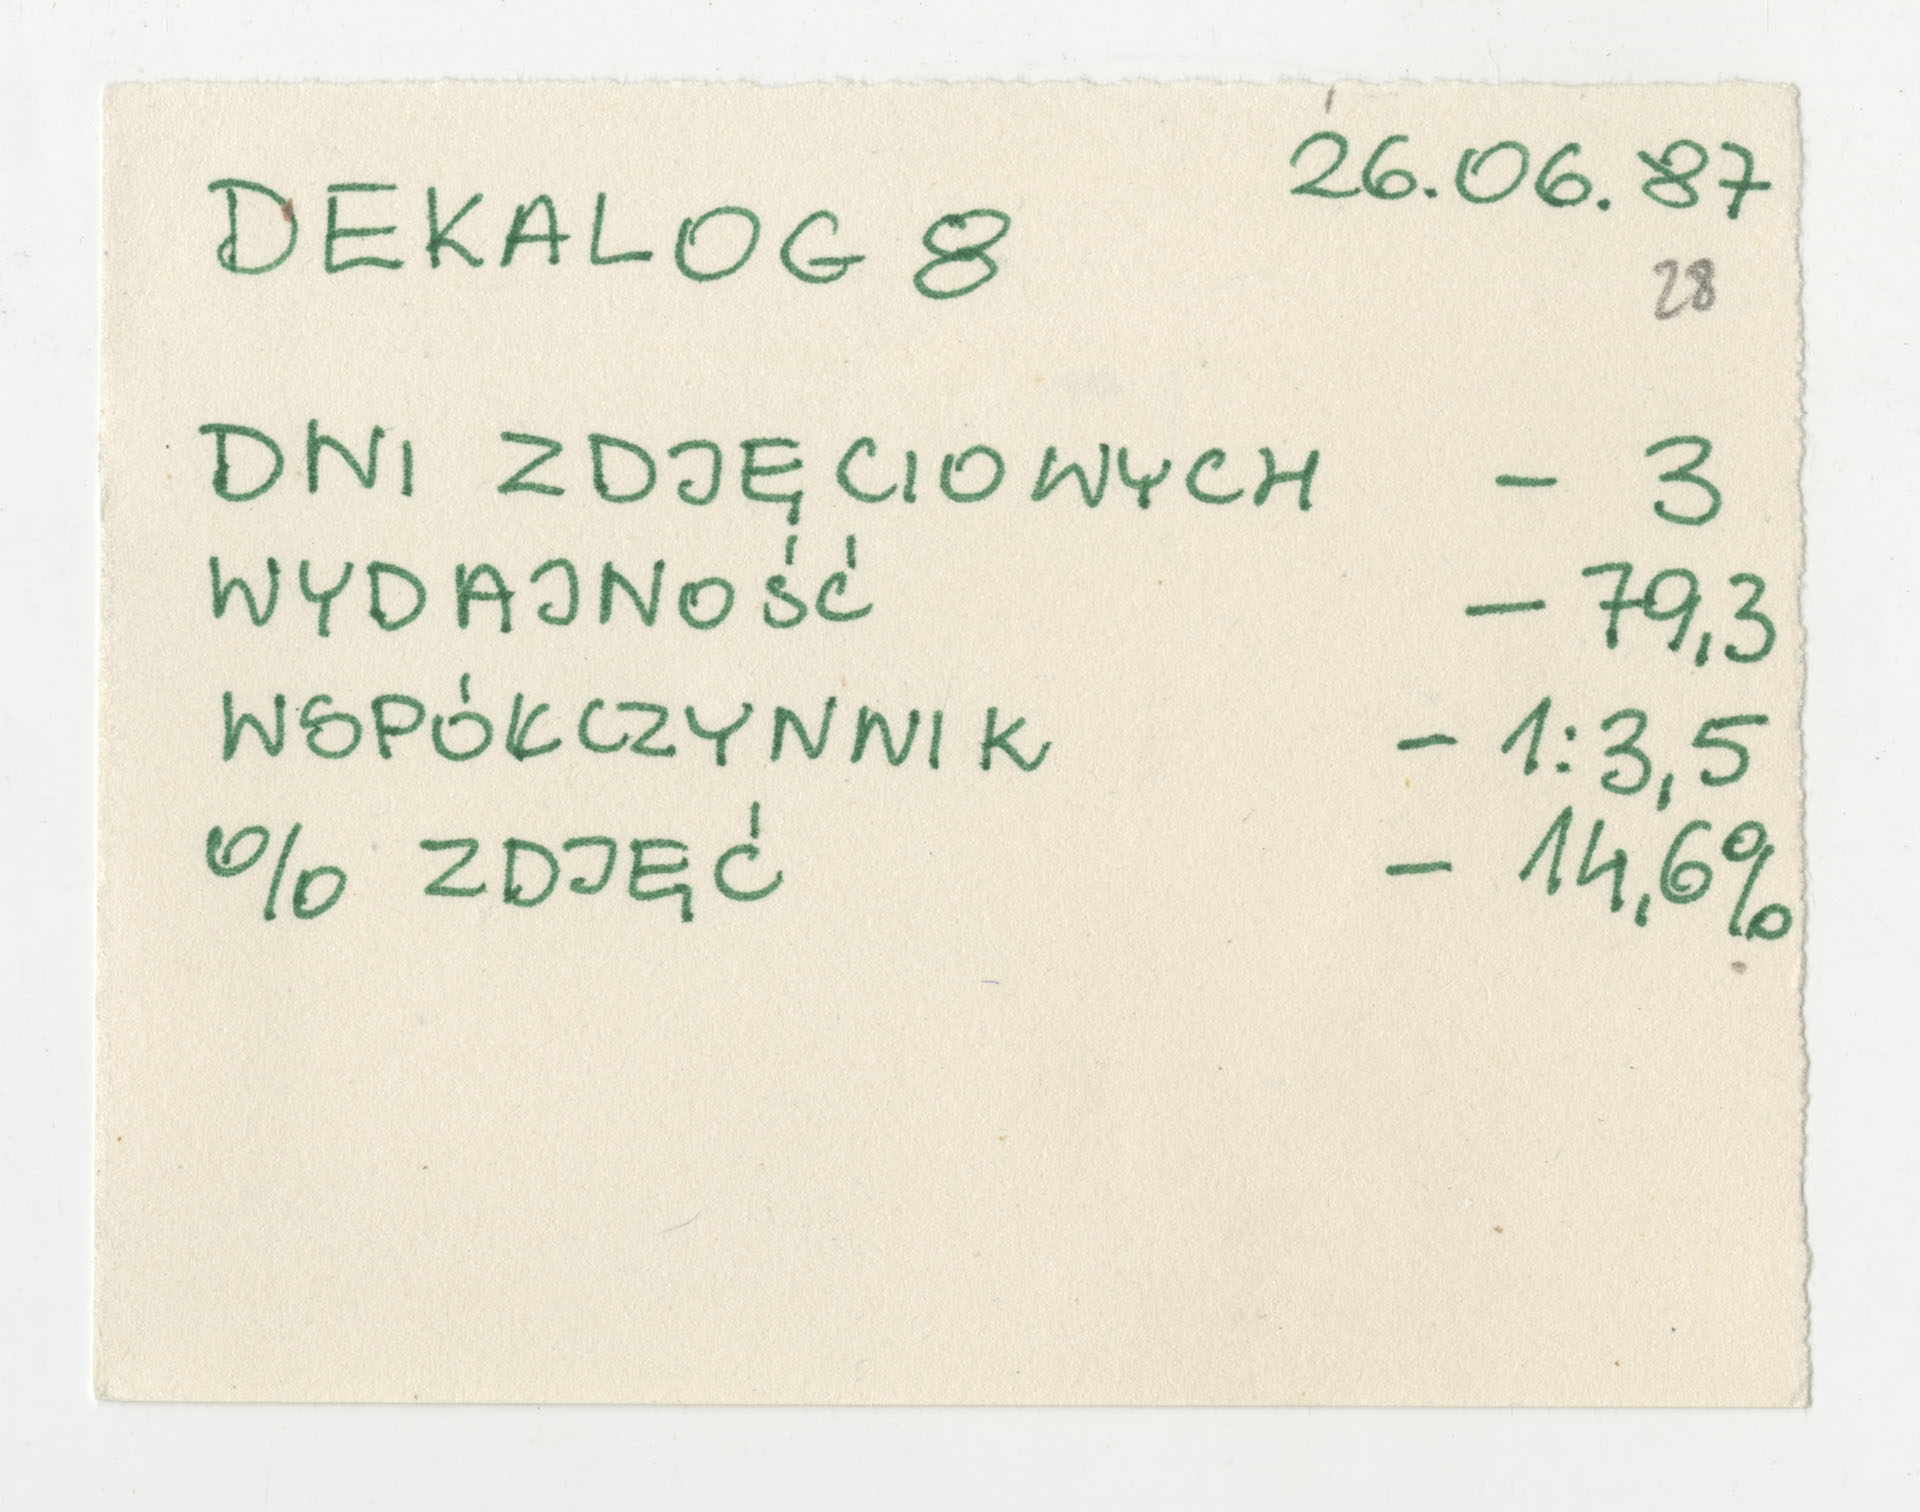 26.06.87
DEKALOG 8
28
DNI ZDJĘCIOWYCH - 3
WYDAJNOŚĆ - 79,3
WSPÓŁCZYNNIK - 1:3,5
% ZDJĘĆ - 14,6%